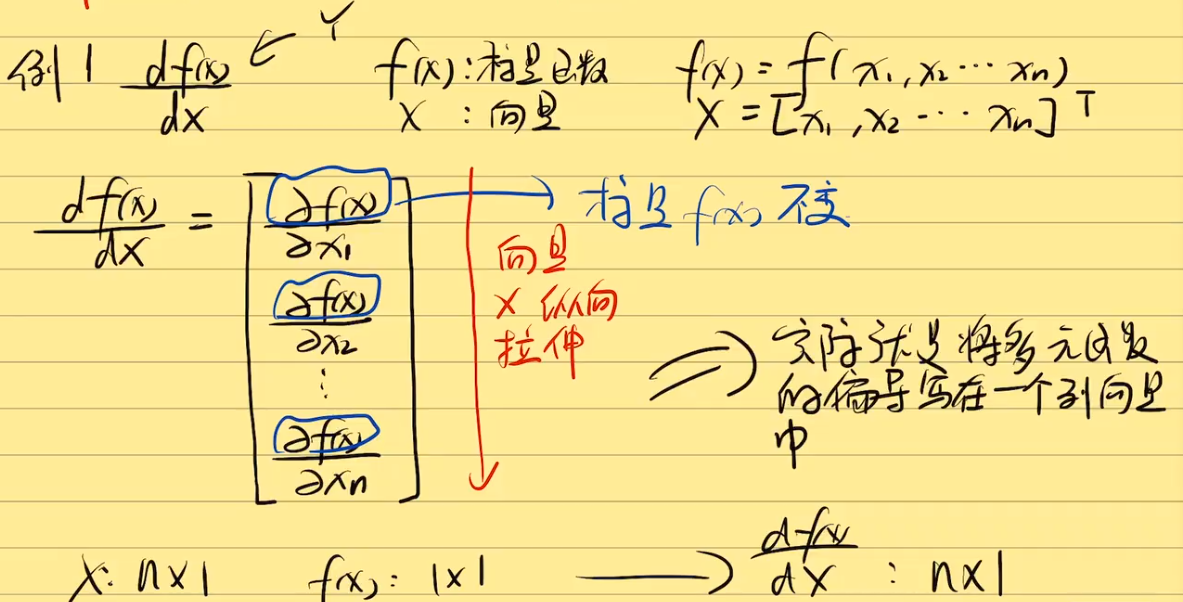 例1 df(x)/dx ← Y f(x):标量函数 f(x) = f(x₁,x₂⋯xₙ)
X :向量 X = [x₁,x₂⋯xₙ]ᵀ
df(x)/dX = [∂f(x)/∂x₁ ∂f(x)/∂x₂ ⋮ ∂f(x)/∂xₙ]
→ 标量f(x)不变
向量
X 纵向
拉伸
⇒ 实际就是将多元函数
的偏导写在一个列向量
中
X: n×1 f(x): 1×1 → df(x)/dX : n×1